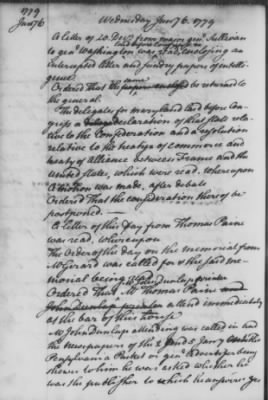 1779
Jany 6
Wednesday Jany 6. 1779
A letter of 20. Decr from major genl. Sullivan
to genl Washington was laid before Congress & read, enclosing an
intercepted letter and sundry papers of intelli-
gence.
Ordered that the same be returned to
the general.
The delegates for maryland laid before Con-
gress a declaration of that state rela-
tive to the Confederation and a resolution
relative to the treatys of commerce and
treaty of alliance between France and the
United states, which were read, Whereupon
A motion was made, after debate
Ordered That the consideration thereof be
postponed.
A letter of this Day from Thomas Paine
was read, whereupon
The Order of the day on the memorial from
Mr Gerard was called for & the said me-
morial being read
John Dunlap printer
Ordered that Mr Thomas Paine and
John Dunlap printer attend immediately
at the bar of this house
Mr John Dunlap attending was called in and
the newspapers of the 2 and 5 Jany
Pensylvania Packet or genl Advertiser being
shewn to him he was asked whether he
was the publisher to which he answers Yes